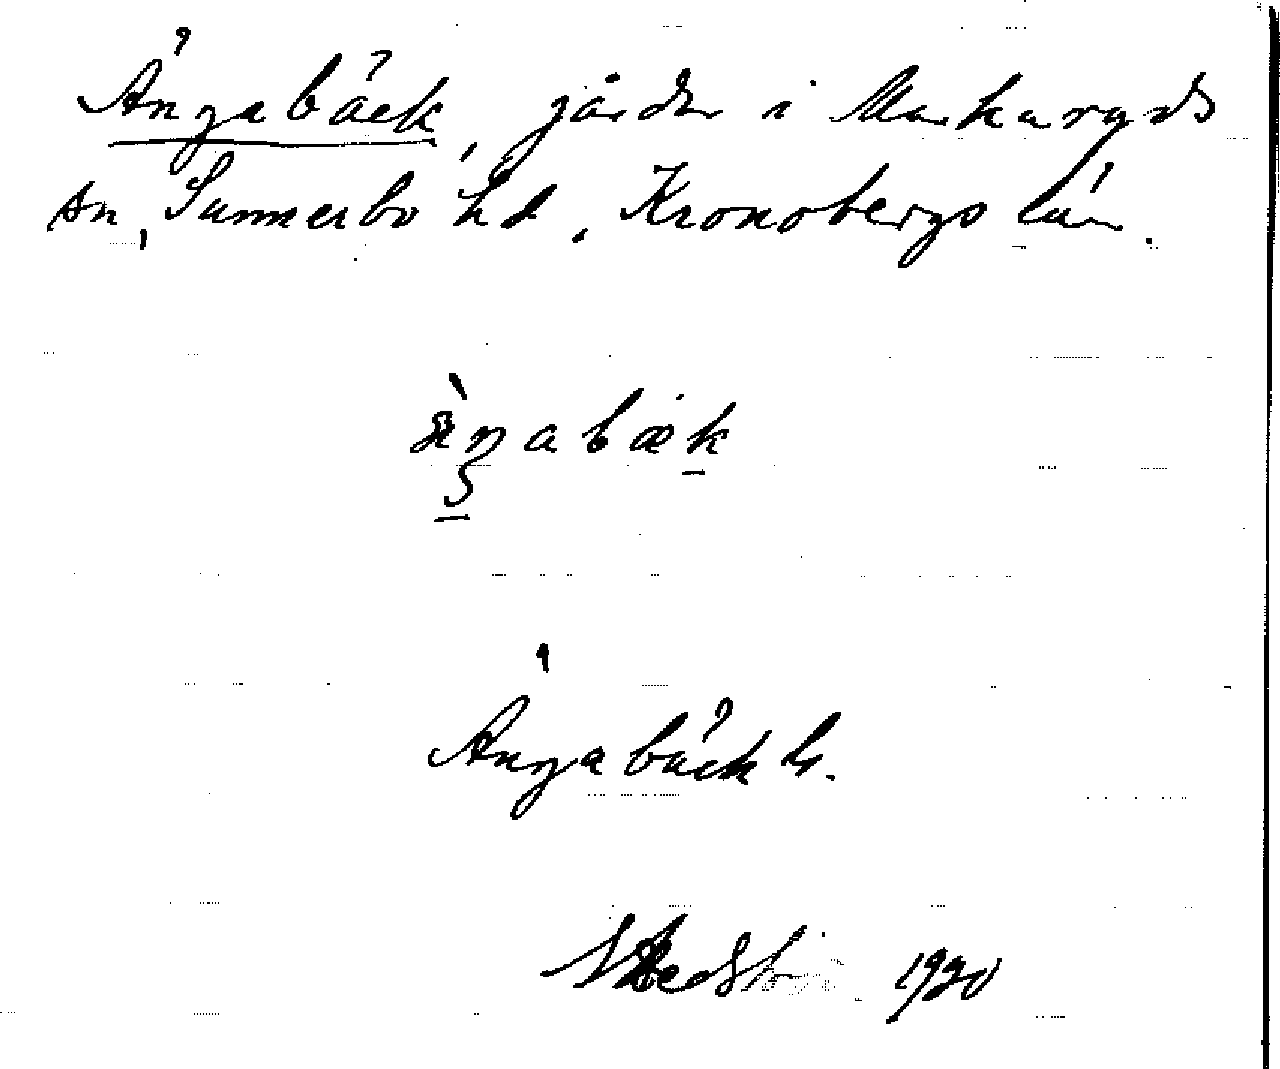 Ängabäck, gårdar i Markaryds
sn, Sunnerbo hd, Kronobergs län.
ängabæk
Ängabäck
1920